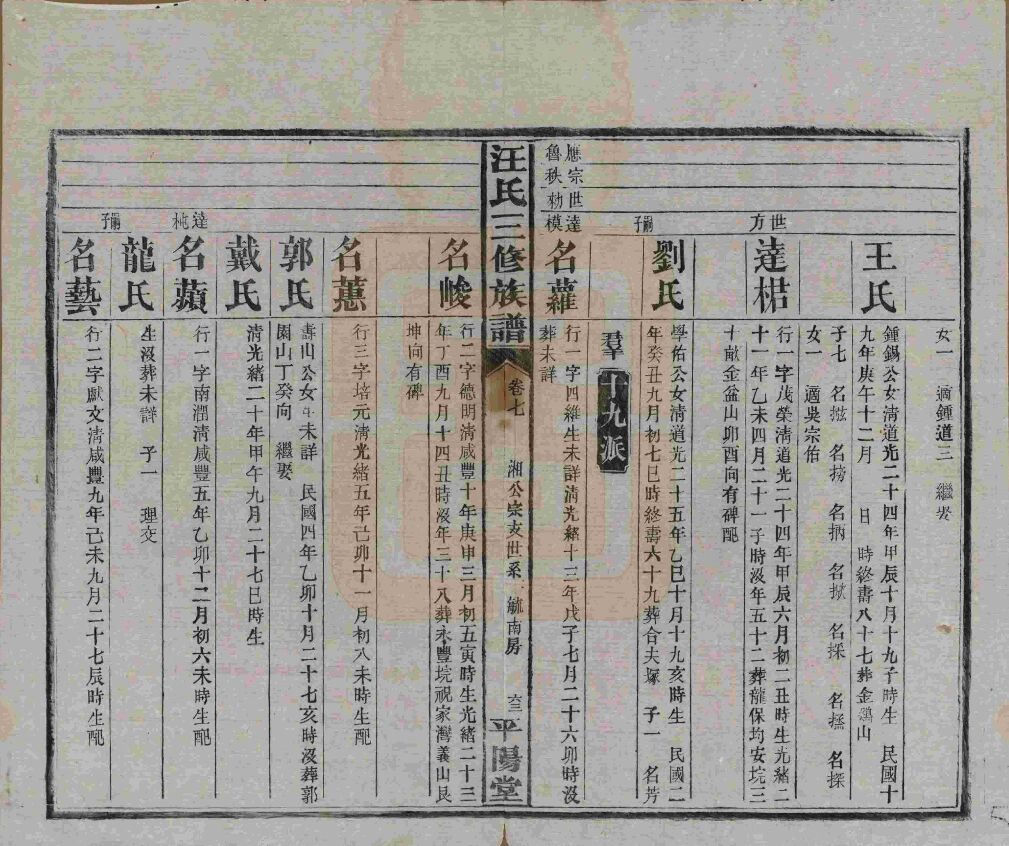 女一　適鍾道三　繼娶
王氏
鍾錫公女清道光二十四年甲辰十月十九子時生　民國十
九年庚午十二月　日　時終壽八十七葬金鷄山
子七　名　名搒　名抦　名　名採　名　名探
女一　適吳宗佑
世方
達楛
行一字茂榮清道光二十四年甲辰六月初二丑時生光緒二
十一年乙未四月二十一子時沒年五十二葬龍保均安垸三
十献金盆山卯酉向有碑配
劉氏
學佑公女清道光二十五年乙巳十月十九亥時生　民國二
年癸丑九月初七巳時終壽六十九葬合夫塚　子一　名芳
嗣子
羣
十九派
應宗世達
魯秩勑模
名蘿
行一字四維生未詳清光緒十三年戊子七月二十六卯時沒
葬未詳
汪氏三修族譜　卷七　湘公宗支世系　毓南房　六三　平陽堂
名峻
行二字德明清咸豐十年庚申三月初五寅時生光緒二十三
年丁酉九月十四丑時沒年三十八葬永豐垸祝家灣義山艮
坤向有碑
名蕙
行三字培元清光緒五年己卯十一月初八未時生配
郭氏
壽山公女生未詳　民國四年乙卯十月二十七亥時沒葬郭
園山丁癸向　繼娶
戴氏
清光緒二十年甲午九月二十七巳時生
達杶
名蘋
行一字南澗清咸豐五年乙卯十二月初六未時生配
龍氏
生沒葬未詳　子一　理交
嗣子
名藝
行二字獻文清咸豐九年己未九月二十七辰時生配